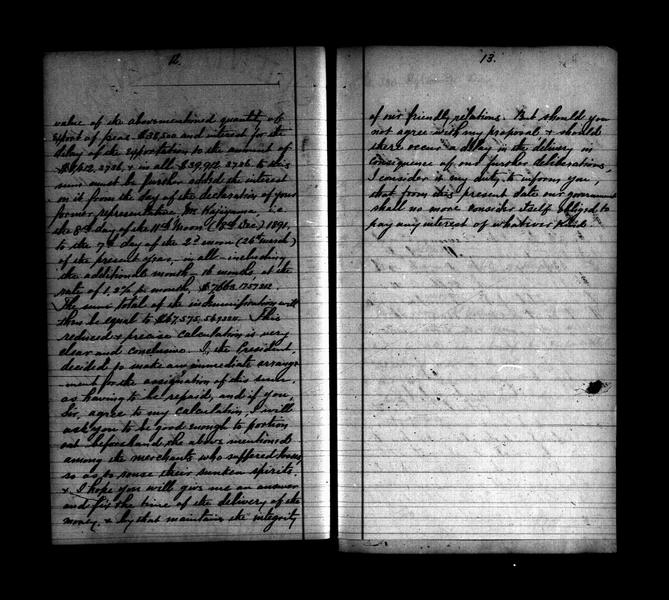 12.
value of the abovementioned quantity of
export of peas $38,500 and interest for the
delay of the exportation to the amount of
in all $39,912.2726 to this
sum must be further added the interest
on it from the day of the declaration of your
former representative, Mr Kajiyama, i.e.
the 8th day of the 11th Moon Dec) 1891,
to the day of the 2d moon March)
of the present year, in all including
the additional month 16 months, at the
rate of 1.2% pr month,
The sum total of the indemnification will
thus be equal to This
reduced & precise calculation is very
clear and conclusive. I, the President,
decided to make an immediate arrange
ment for the assignation of this sum,
as having to be repaid, and if you,
Sir, agree to my calculation, I will
ask you to be good enough to portion
out beforehand the above mentioned
among the merchants who suffered
so as to rouse their sunken spirits.
& I hope you will give me an answer
and fix the time of the delivery of the
money, & by that maintain the integrity
13.
of our friendly relations. But should you
not agree with my proposal & should
there occur a delay in the delivery in
consequence of our further deliberations,
I consider it my duty to inform you,
that from this present date our government
shall no more consider itself obliged to
pay any interest of whatever kind